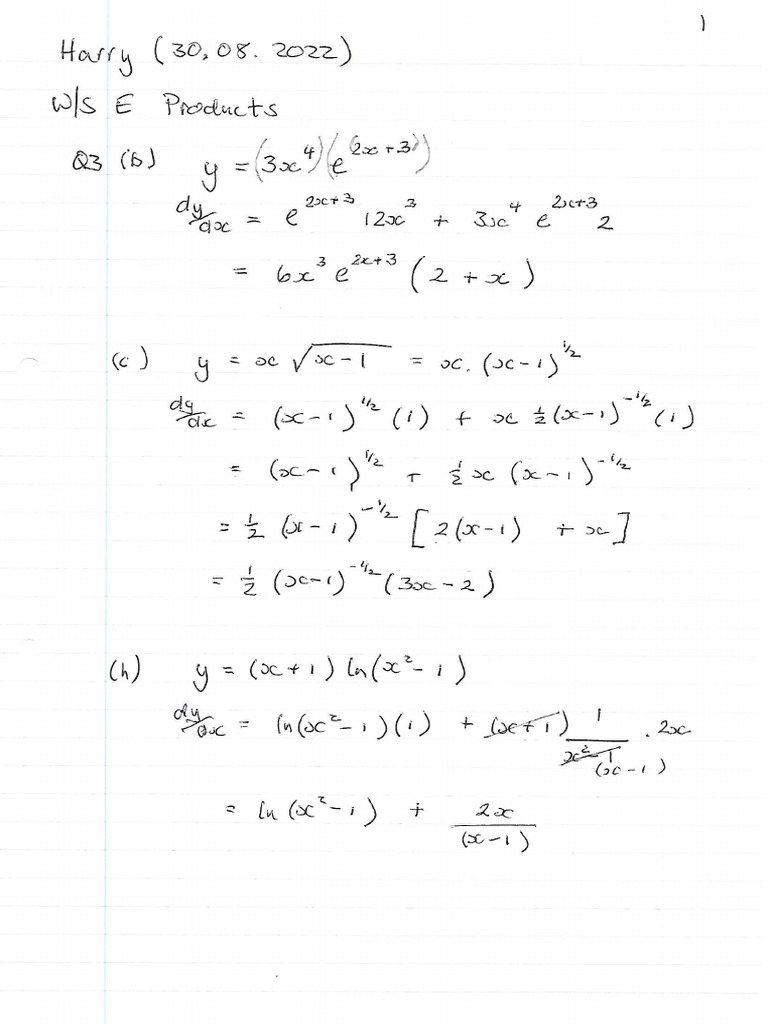 1
Harry (30.08.2022)
W/S E Products
Q3 (b) y = (3x⁴)(e^(2x+3))
dy/dx = e^(2x+3) 12x³ + 3x⁴ e^(2x+3) 2
= 6x³ e^(2x+3) (2 + x)
(c) y = x √(x-1) = x.(x-1)^(1/2)
dy/dx = (x-1)^(1/2) (1) + x 1/2 (x-1)^(-1/2) (1)
= (x-1)^(1/2) + 1/2 x (x-1)^(-1/2)
= 1/2 (x-1)^(-1/2) [2(x-1) + x]
= 1/2 (x-1)^(-1/2) (3x-2)
(h) y = (x+1) ln(x²-1)
dy/dx = ln(x²-1)(1) + (x+1) 1/(x²-1) . 2x
(x-1)
= ln(x²-1) + 2x/(x-1)